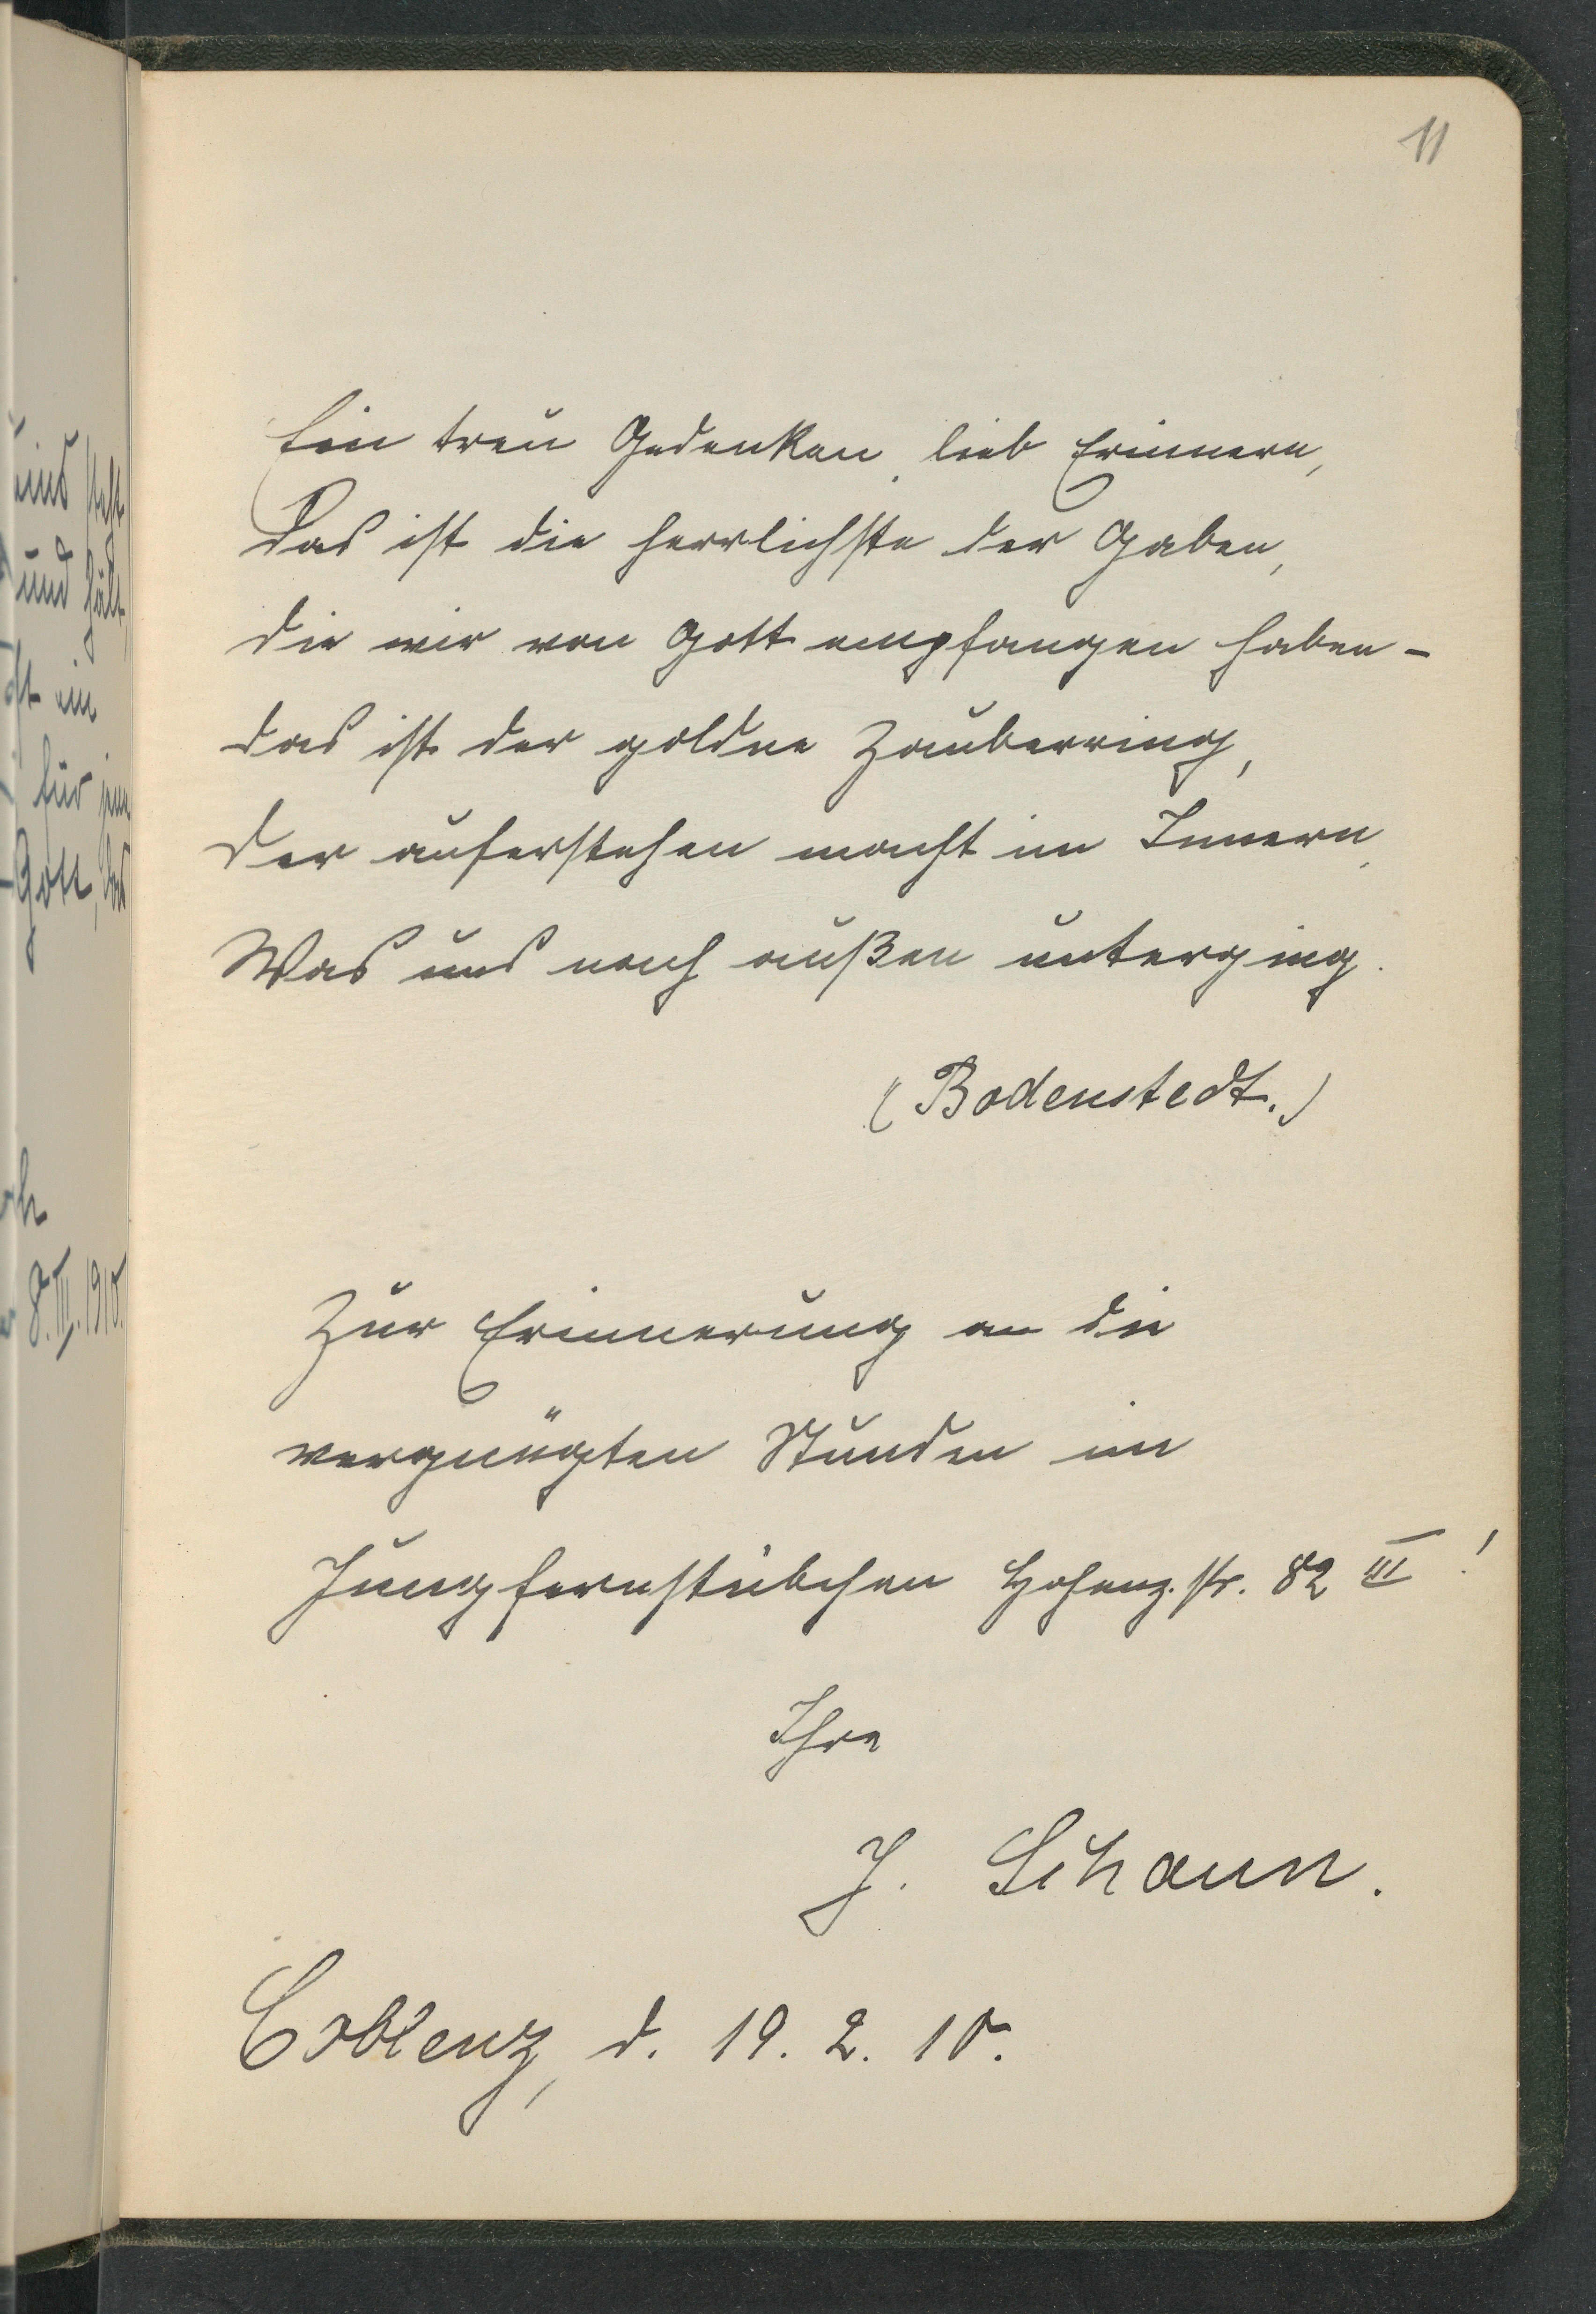 11
Ein treu Gedenken, lieb Erinnern,
Das ist die herrlichste der Gaben,
die wir von Gott empfangen haben -
das ist der goldne Zauberring,
Der auferstehen macht im Innern,
Was uns nach außen unterging.
(Bodenstedt.)
Zur Erinnerung an die
vergnügten Stunden im
Jungfernstübchen Hohenz. str. 82 III!
Ihre
J. Schaun.
Coblenz, d. 19. 2. 10.
uns steht
und hält,
ft ein
für jene
Gott, das
8. III. 1910.